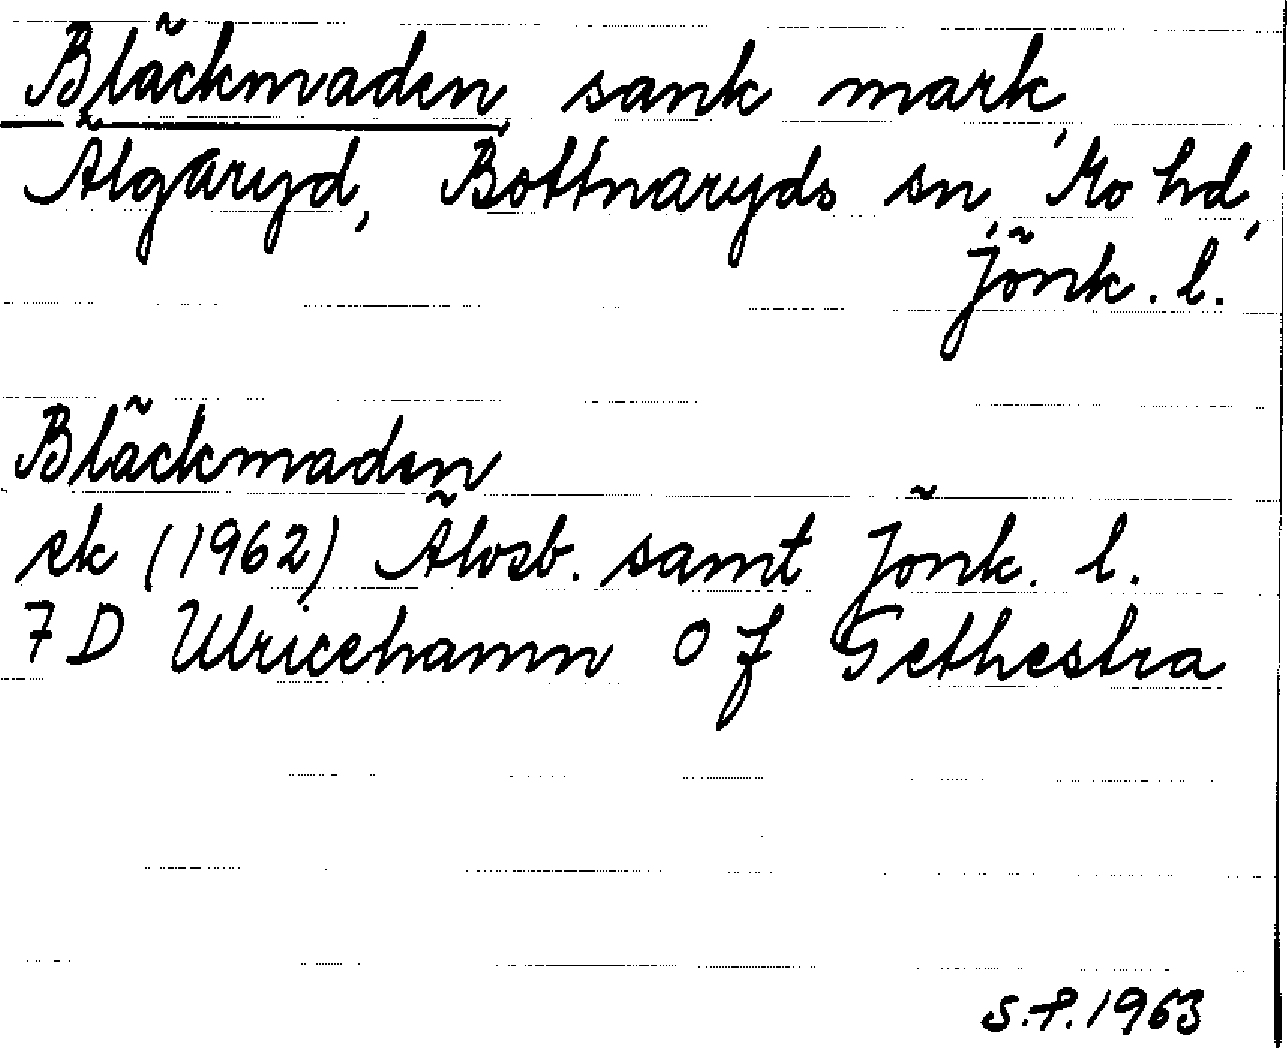 Bläckmaden, sank mark,
Älgaryd, Bottnaryds sn, Mo hd,
Jönk. l.
Bläckmaden
ek (1962) Älvsb. samt Jönk. l.
7 D Ulricehamn 0 f Gethestra
S.F. 1963